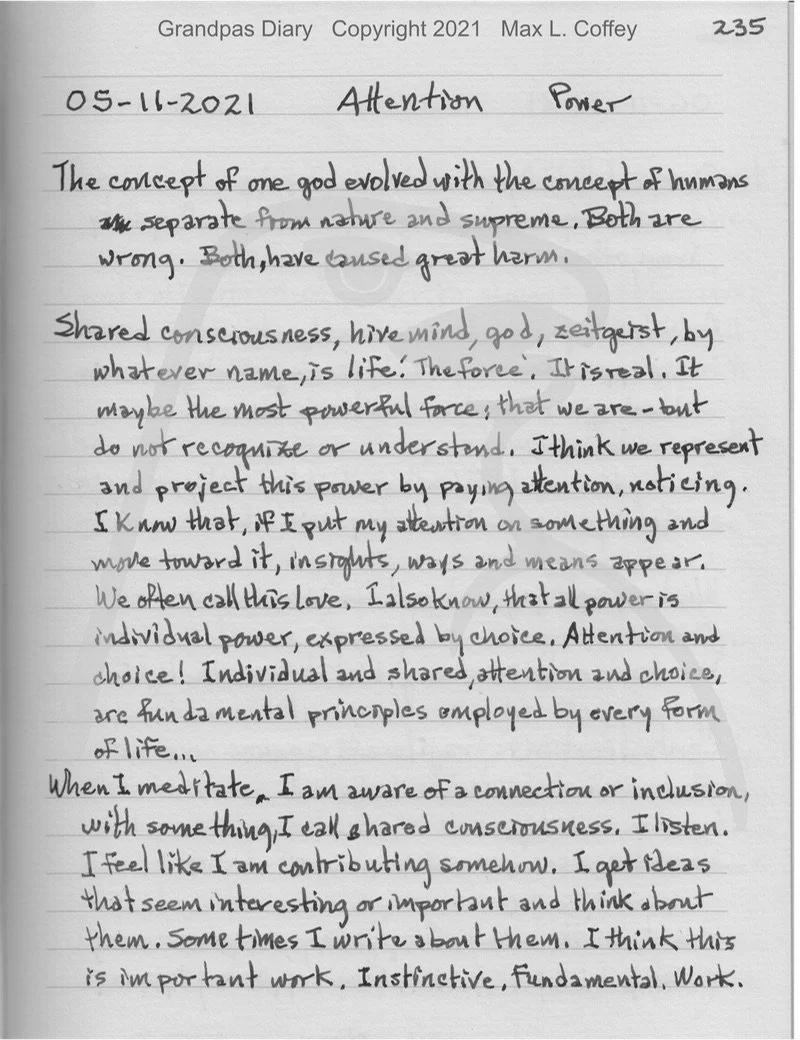 Grandpas Diary Copyright 2021 Max L. Coffey 235
05-11-2021 Attention Power
The concept of one god evolved with the concept of humans
separate from nature and supreme. Both are
wrong. Both, have caused great harm.
Shared consciousness, hive mind, god, zeitgeist, by
whatever name, is life! The force'. It is real. It
maybe the most powerful force; that we are - but
do not recognize or understand. I think we represent
and project this power by paying attention, noticing.
I know that, if I put my attention on something and
move toward it, insights, ways and means appear.
We often call this love. I also know, that all power is
individual power, expressed by choice. Attention and
choice! Individual and shared, attention and choice,
are fundamental principles employed by every form
of life...
When I meditate, I am aware of a connection or inclusion,
with something, I call shared consciousness. I listen.
I feel like I am contributing somehow. I get ideas
that seem interesting or important and think about
them. Sometimes I write about them. I think this
is important work. Instinctive, Fundamental, Work.